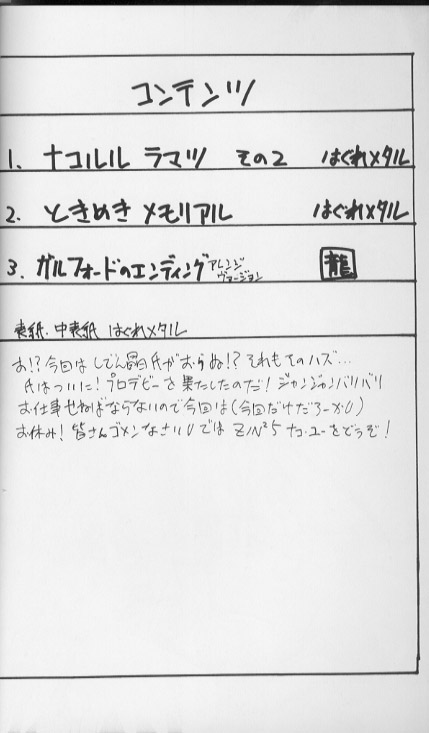 コンテンツ
1. ナコルル ラマツ その2 はぐれメタル
2. ときめき メモリアル はぐれメタル
3. ガルフォードのエンディング アレンジ ヴァージョン 龍
表紙・中表紙 はぐれメタル
お!? 今回は しでん晶氏がおらぬ!? それもそのハズ…
氏はついに! プロデビーを果たしたのだ! ジャンジャンバリバリ
お仕事せねばならないので今回は(今回だけだろーか)
お休み! 皆さんゴメンなさい では ナコ・ユーをどうぞ!